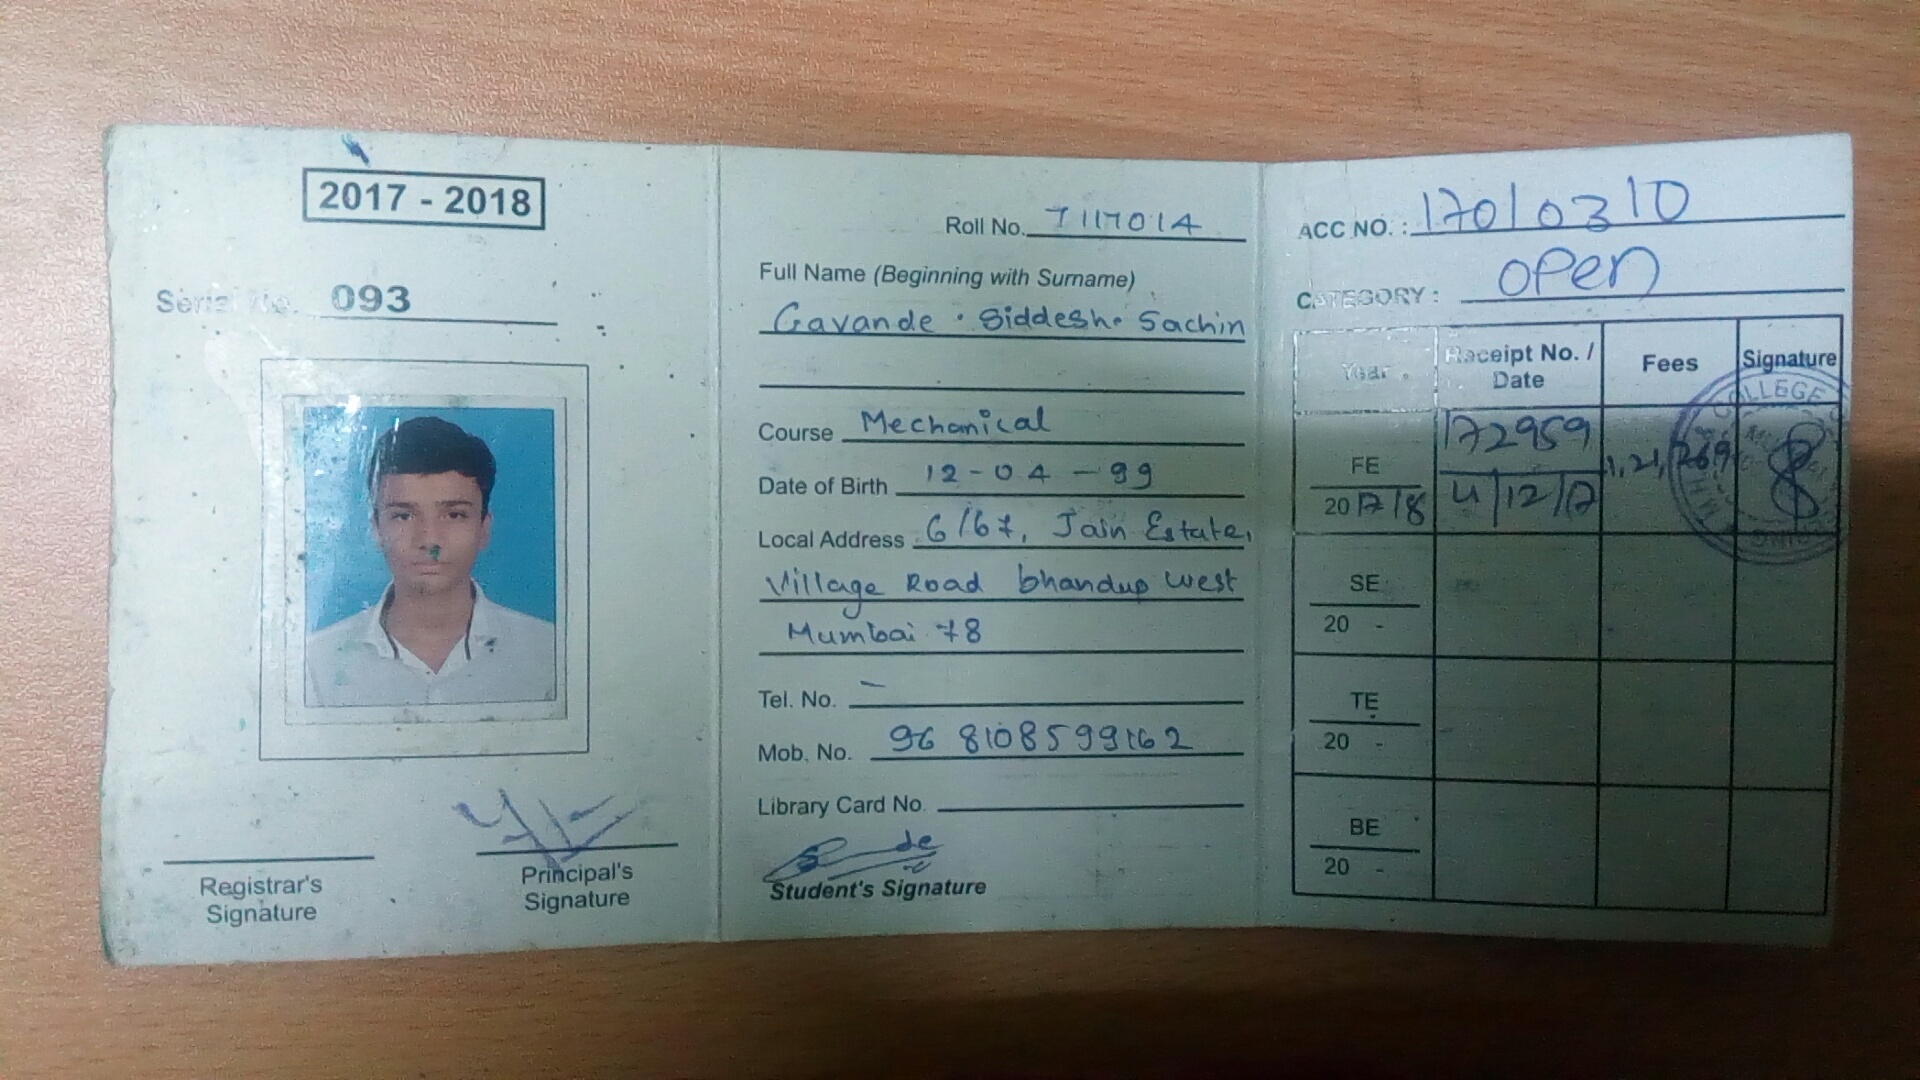 2017 - 2018
Serial No. 093
Registrar's Signature
Principal's Signature
Roll No. 7117014
Full Name (Beginning with Surname)
Gavande . Siddesh. Sachin
Course Mechanical
Date of Birth 12-04-99
Local Address 6/67, Jain Estate,
Village Road bhandup west
Mumbai 78
Tel. No. –
Mob. No. 96 8108599162
Library Card No.
Student's Signature
ACC NO. : 17010310
CATEGORY : open
Year Receipt No. / Date Fees Signature
FE 2017/8 172959 4/12/17 1,21,269
COLLEGE
SE 20 -
TE 20 -
BE 20 -